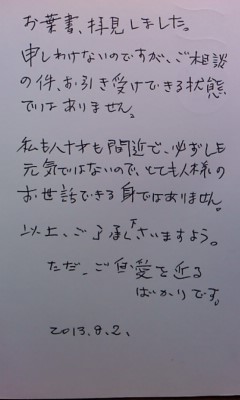 お葉書、拝見しました。
申しわけないのですが、ご相談
の件、お引き受けできる状態
ではありません。
私も八十才も間近で、必ずしも
元気ではないので、とても人様の
お世話できる身ではありません。
以上、ご了承下さいますよう。
ただ、ご自愛を祈る
ばかりです。
2013.9.2、